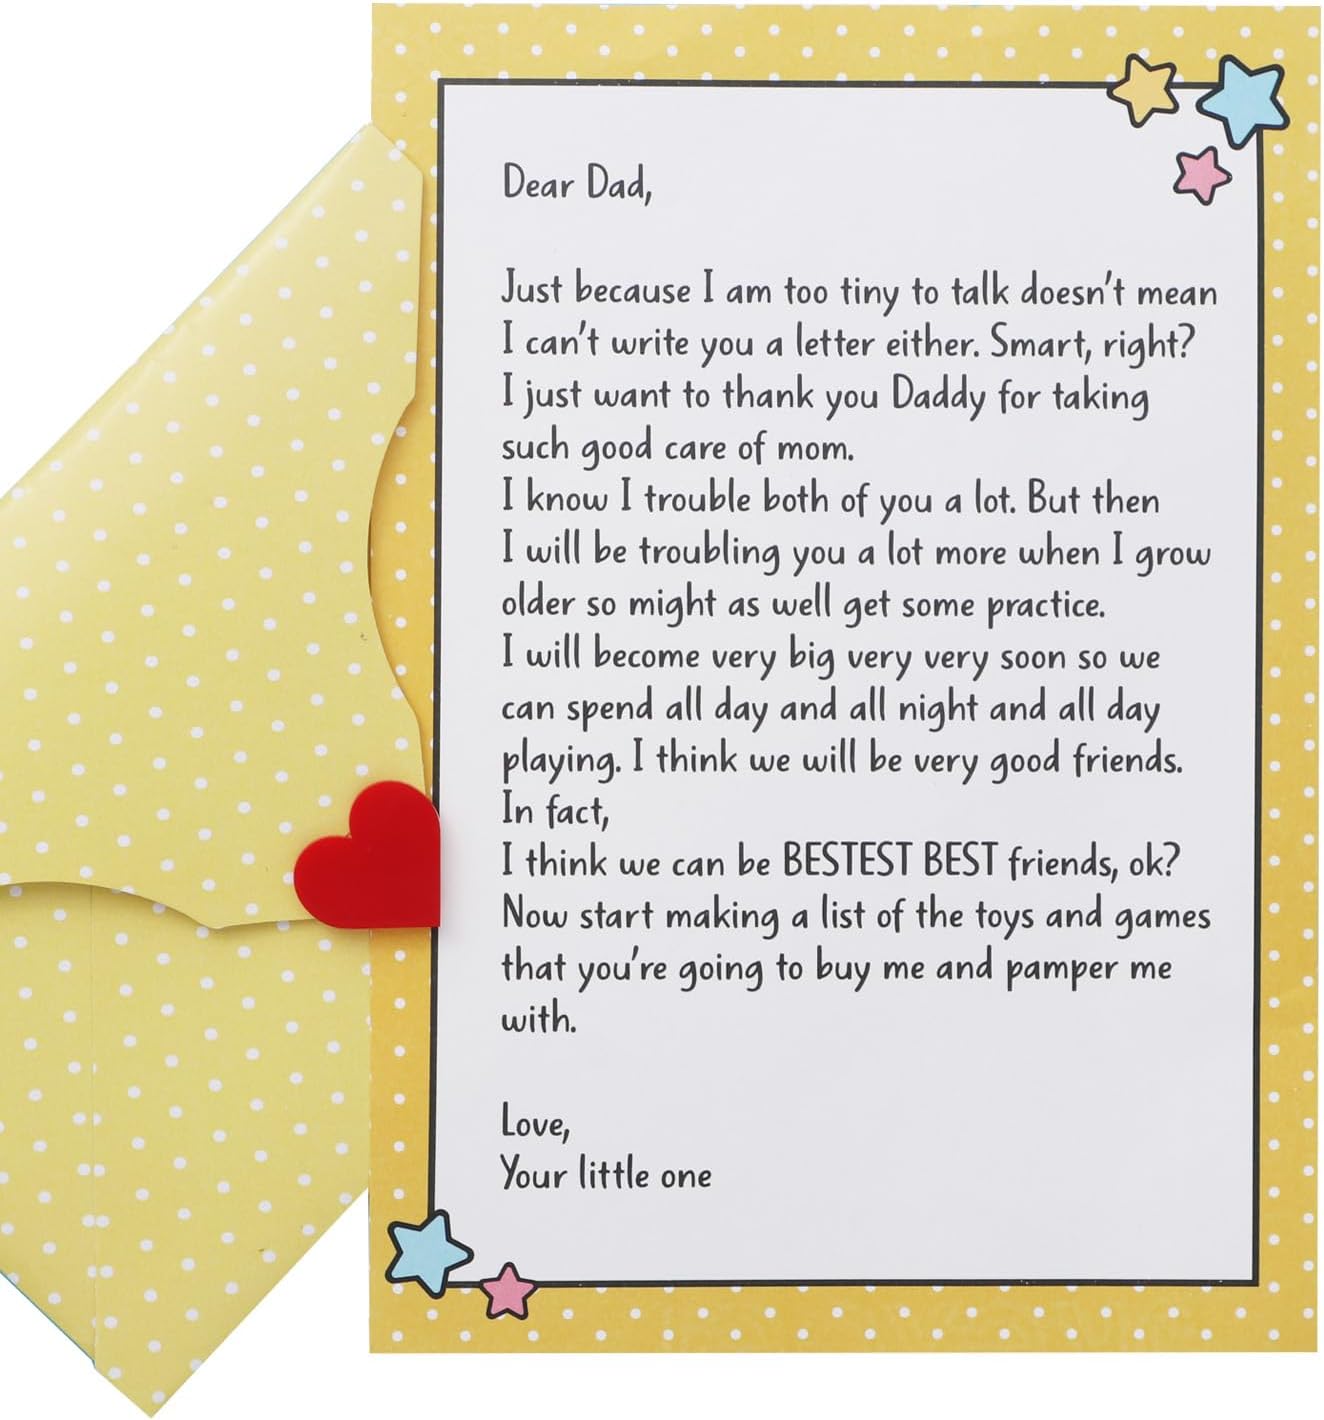 Dear Dad,
Just because I am too tiny to talk doesn't mean
I can't write you a letter either. Smart, right?
I just want to thank you Daddy for taking
such good care of mom.
I know I trouble both of you a lot. But then
I will be troubling you a lot more when I grow
older so might as well get some practice.
I will become very big very very soon so we
can spend all day and all night and all day
playing. I think we will be very good friends.
In fact,
I think we can be BESTEST BEST friends, ok?
Now start making a list of the toys and games
that you're going to buy me and pamper me
with.
Love,
Your little one